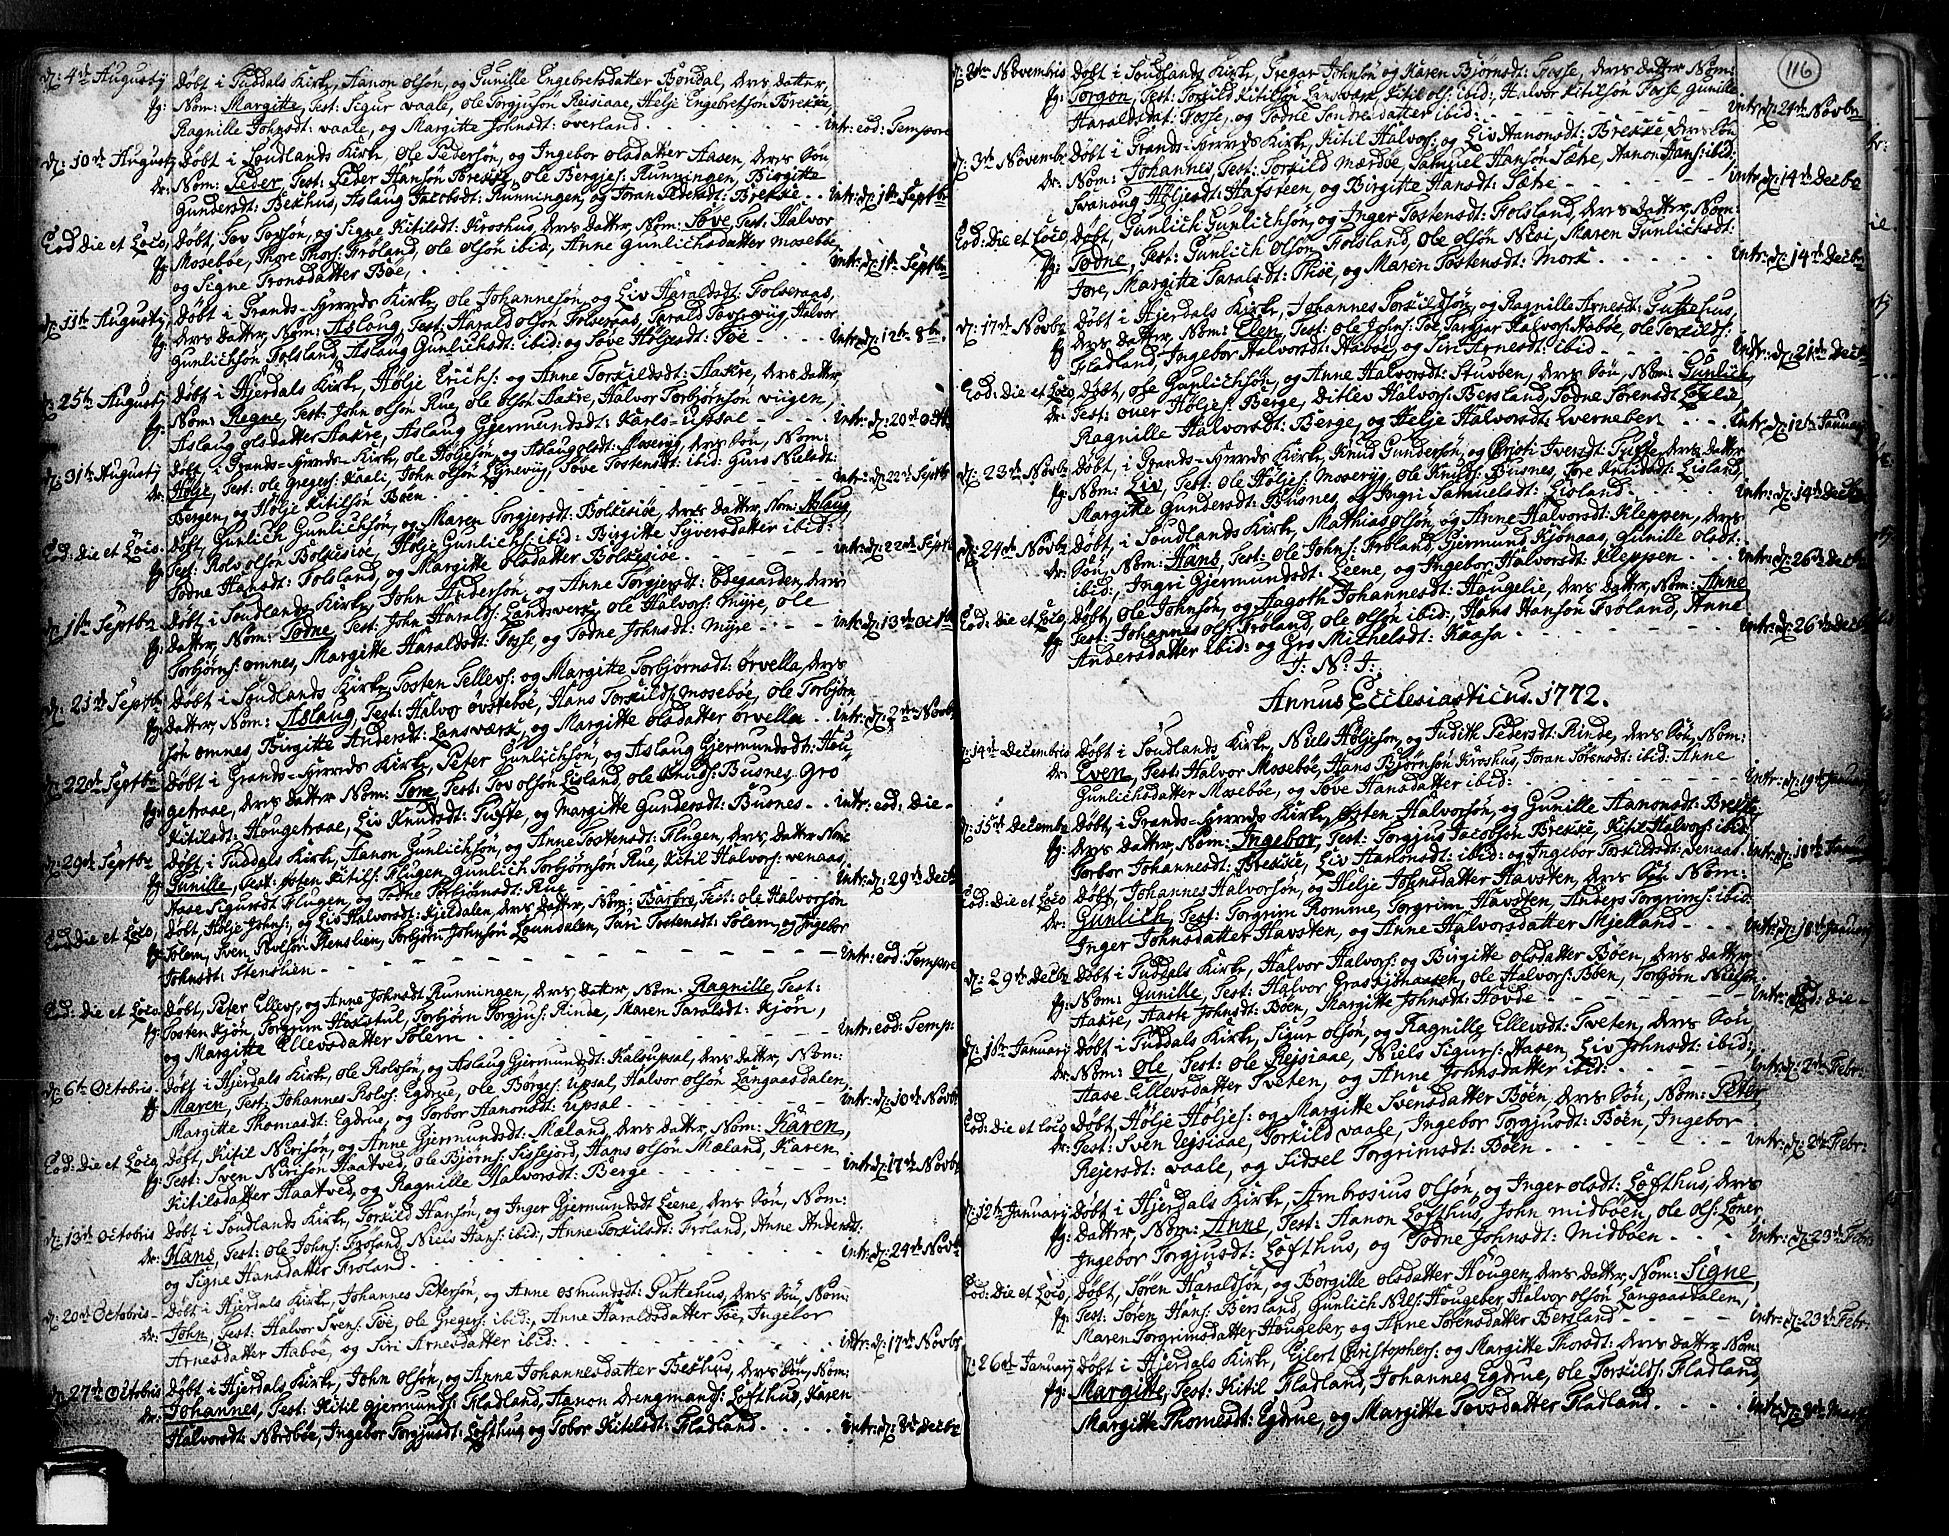 d: 4de Augustij Døbt i Tuddals Kirke, Aanon olsøn, og Gunille Engebretsdatter Bondal, deres datter,
pg: Nom: Margitte, Test: Sigur vaale, ole Torgiusøn Reisiaae, Helje Engebretsøn Brekke,
Ragnille Johnsdt: vaale, og Margitte Johnsdt: overland. intr: eod: Tempore
d: 10de Augustij Døbt i Soudlands Kirke, ole Pedersøn, og Ingebor olsdatter Aasen, deres Søn
dr: Nom: Peder, Test: Peder Hansøn Brekke, ole Bergies: Runningen, Birgitte
Gundersdt: Bekhus, Aslaug Jacobsdt: Runningen, og Joran Pedersdt: Brekke. intr: d: 1ste Septbr
Eod: die et Loco, Døbt, Tov Tovsøn, og Signe Kitilsdt: Kroshus, deres datter, Nom: Tove, Test: Halvor
pg: Mosebøe, Thore Thors: Frøland, ole olsøn ibid:, Anne Gunlichsdatter Mosebøe,
og Signe Tronsdatter Bøe. intr: d: 1ste Septbr
d: 11te Augustij Døbt i Grands-Herreds Kirke, ole Johannesøn, og Liv Haraldsdt: Folseraas,
pg: deres datter, Nom: Aslaug, Test: Harald olsøn Folseraas, Halvor
Gunlichsøn Folsland, Aslaug Gunlichsdt: ibid: og Tove Høljesdt: Tøe intr: d: 12te 8br.
d: 25te Augustij Døbt i Hjerdals Kirke, Hølje Erichs: og Anne Torkildsdt: Aakre, deres datter,
pg: Nom: Regne, Test: John olsøn Rue, ole olsøn Aakre, Halvor Torbjørnsøn
Aslaug olsdatter Aakre, Aslaug Gjermundsdt: Karls-Upsal intr: d: 20de Octbr
d: 31te Augustij Døbt i Grands-Herreds-Kirke, ole Høljesøn, og Aslaug olsdt: Moseviig, deres Søn, Nom:
dr: Hølje, Test: ole Gregers: Kaali, John olsøn, Tove Tostensdt: ibid: Guro Nielsdt:
Bergen, og Hølje Kitilsøn Bøen. intr: d: 22de Septbr
Eod: die et Loco. Døbt, Gunlich Gunlichsøn, og Maren Torgjersdt: Bolkesiøe, deres datter, Nom: Aslaug,
pg: Test: Rolv olsøn Bolkesiøe, Hølje Gunlichs: ibid: Birgitte Syversdatter ibid:
Todne Hansdt: Folsland, og Margitte olsdatter Bolkesiøe. intr: d: 22de Septbr
d: 1ste Septbr Døbt i Soudlands Kirke, John Andersøn, og Anne Torgjersdt: Ødegaarden, deres
pg: datter, Nom: Todne, Test: John Haralds: Landsverk, ole Halvors: Myre, ole
Torbjørns: omnes, Margitte Haraldsdt: Fosse, og Todne Johnsdt: Myre intr: d: 13de Octbr
d: 21de Septbr Døbt i Soudlands Kirke, Tosten Tellevs: og Margitte Torbjørnsdt: ørvella, deres
pg: datter, Nom: Aslaug, Test: Halvor øvstebøe, Hans Torkilds: Mosebøe, ole Torbjørn
søn omnes, Birgitte Andersdt: Lansverk, og Margitte olsdatter ørvella intr: d: 2de Novbr
d: 22de Septbr Døbt i Grands-Herreds Kirke, Peter Gunlichsøn, og Aslaug Gjermundsdt: Hou
pg: getraae, deres datter Nom: Tone, Test: Tov olsøn Lisland, ole Knuds: Busnes, Gro
Kitilsdt: Hougetraae, Liv Knudsdt: Tufte, og Margitte Gundersdt: Busnes intr: eod: die
d: 29de Septbr Døbt, i Tuddals Kirke, Aanon Gunlichsøn, og Anne Tostensdt: Flugen, deres datter Nom:
pg: Gunille, Test: østen Kitils: Flugen, Gunlich Torbjørnsøn Rue, Kitil Halvors: venaas,
Aase Sigursdt: Flugen, og Todne Torbjørnsdt: Rue intr: d: 29de Decbr
Eod: die et Loco. Døbt, Hølje Johns:, og Liv Halvorsdt: Kjeldalen, deres datter, Nom: Barbro, Test: ole Halvorsøn
pg: Solem, Sven Povlsøn Stenslien, Torbjørn Johnsøn Loundalen, Siri Tostensdt: Solem, og Ingebor
Johnsdt: Stenslien intr: eod: Tempore
Eod: die et Loco. Døbt, Peter Ellevs:, og Anne Johnsdt: Runningen, deres datter, Nom: Ragnille, Test:
pg: Tosten Kjøn, Torgrim Haxstul, Torbjørn Torgius: Rinde, Maren Taralsdt: Kjøn,
og Margitte Ellevsdatter Solem. intr: eod: Temp:
d: 6te Octobris. Døbt i Hjerdals Kirke, ole Rolvsøn, og Aslaug Gjermundsdt: Kalsupsal, deres datter, Nom:
pg: Maren, Test: Johannes Rolvs: Egdrue, ole Børges: Upsal, Halvor olsøn Langaasdalen,
Margitte Thomasdt: Egdrue, og Torbor Hanonsdt: Upsal intr: d: 10de Novbr
Eod: die et Loco, Døbt, Kitil Nirisøn, og Anne Gjermundsdt: Mæland, deres datter, Nom: Karen,
pg: Test: Sven Nirisøn Haatved, ole Bjørns: Sissejord, Hans olsøn Mæland, Karen
Kitilsdatter Haatved, og Ragnille Halvorsdt: Berge intr: d: 17de Novbr
d: 13de Octobris Døbt i Soudlands Kirke, Torkild Hansøn, og Inger Gjermundsdt Leene, deres Søn, Nom:
dr: Hans, Test: ole Johns: Frøland, Niels Hans: ibid:, Anne Torkilsdt: Froland, Anne Andersdt:
og Signe Hansdatter Froland. intr: d: 24de Novbr
d: 20de Octobris Døbt i Hjerdals Kirke, Johannes Petersøn, og Anne osmundsdt: Puttehus, deres Søn, Nom:
dr: John, Test: Halvor Svens: Tøe, ole Gregers: ibid:, Anne Haraldsdatter Tøe, Ingebor
Arnesdatter Aabøe, og Siri Arnesdatter ibid: intr: d: 17de Novbr
d: 27de Octobris Døbt i Hjerdals Kirke, John olsøn, og Anne Johannesdatter Bekhus, deres Søn, Nom:
dr: Johannes, Test: Kitil Gjermunds: Fladland, Aanon Drengmans: Lofthus, Karen
Halvorsdt: Nordbøe, Ingebor Torgjusdt: Lofthus, og Tobor Kitelsdt: Fladland. intr: d: 8de Decbr
116
d: 2den Novembris Døbt i Soudlands Kirke, Gregar Johnsøn og Karen Bjørnsdt: Fosse, deres datter Nom:
pg: Torgon, Test: Torkild Kitilsøn Landsverk, Kitil ols: ibid:, Halvor Kitilsøn Fosse Gunille
Haraldsdat: Fosse, og Todne Sondresdatter ibid: intr: d: 24de Novbr
d: 3de Novembr Døbt i Grands-Herreds Kirke, Kitil Halvors: og Liv Aanonsdt: Brekke, deres Søn
dr: Nom: Johannes, Test: Torkild Mærdøe, Samuel Hansøn Sæthe, Aanon Hans: ibid:
Svanaug Høljesdt: Hafsteen, og Birgitte Hansdt: Sæthe intr: d: 14de Decbr
Eod: die et Loco, Døbt, Gunlich Gunlichsøn, og Inger Tostensdt: Folsland, deres datter, Nom:
pg: Todne, Test: Gunlich olsøn Folsland, ole olsøn Nisi, Maren Gunlichsdt:
Jore, Margitte Taralsdt: Thøe, og Maren Tostensdt: Mork intr: d: 14de Decbr
d: 17de Novbr Døbt i Hjerdals Kirke, Johannes Torkildsøn, og Ragnille Arnesdt: Puttehus,
pg: deres datter, Nom: Elen, Test: ole Johns: Tøe, Tarkjer Halvors: Aabøe, ole Torkilds:
Fladland, Ingebor Halvorsdt: Aabøe, og Siri Arnesdt: ibid intr: d: 21de Decbr
Eod: die et Loco, Døbt, ole Gunlichsøn, og Anne Halvorsdt: Stuvben, deres Søn, Nom: Gunlich,
dr: Test: over Høljes: Berge, Ditlev Halvors: Bersland, Todne Sørensdt
Ragnille Halvorsdt: Berge, og Helje Halvorsdt: Qverneber intr: d: 12te Januarij
d: 23de Novbr Døbt i Grands-Herreds Kirke, Knud Gundersøn, og Christi Iversdt: Tufte, deres datter
pg: Nom: Liv, Test: ole Høljes: Moseviig, ole Knuds: Busnes, Tore Knudsdt: Lisland,
Margitte Gundersdt: Busnes, og Ingri Samuelsdt: Lisland. intr: d: 14de Decbr
d: 24de Novbr Døbt, i Soudlands Kirke, Mathias olsøn, og Anne Halvorsdt: Kleppen, deres
dr: Søn, Nom: Hans, Test: ole Johns: Frøland, Gjermund Kjønaas, Gunille olsdt:
ibid:, Ingri Gjermundsdt: Leene, og Ingebor Halvorsdt: Kleppen intr: d: 26de Decbr
Eod: die et Loco, Døbt, Ole Johnsøn, og Aagoth Johannesdt: Haugelie, deres datter, Nom: Anne
pg: Test: Johannes ols: Frøland, ole olsøn ibid:, Hans Hansøn Frøland, Anne
Andersdatter ibid: og Gro Michelsdt: Kaasa intr: d: 26de Decbr
J: N: J:
Annus Ecclesiasticus. 1772.
d: 14de Decembris Døbt i Soudlands Kirke, Niels Høljesøn, og Judith Pedersdt: Rinde, deres Søn, Nom:
dr: Even, Test: Halvor Mosebøe, Hans Bjørnsøn Kroshus, Joran Sørensdt: ibid: Anne
Gunlichsdatter Mosebøe, og Tove Hansdatter ibid: intr: d: 19de Januarij
d: 15de Decembr Døbt, i Grands-Herreds Kirke, østen Halvorsøn, og Gunille Aanonsdt: Brekke,
pg: deres datter, Nom: Ingebor, Test: Torgjus Jacobsøn Brekke, Kitil Halvors: ibid:
Torbor Johannesdt: Brekke, Liv Aanonsdt: ibid: og Ingebor Torkildsdt: venaas intr: d: 18de Januarij
Eod: die et Loco Døbt, Johannes Halvorsøn, og Helje Johnsdatter Havsten, deres Søn Nom:
dr: Gunlich, Test: Torgrim Romme, Torgrim Havsten, Anders Torgrims: ibid:
Inger Johnsdatter Havsten, og Anne Halvorsdatter Mjelland intr: d: 18de Januarij
d: 29de Decbr Døbt i Tuddals Kirke, Halvor Halvors: og Birgitte olsdatter Bøen, deres datter
pg: Nom: Gunille, Test: Halvor Graskjønaasen, ole Halvors: Bøen, Torbjørn Niels:
Aakre, Aaste Johnsdt: Bøen, Margitte Johnsdt: Hovde intr: Eod: die
d: 1ste Januarij Døbt i Tuddals Kirke, Sigur olsøn, og Ragnille Ellevsdt: Tveten, deres Søn,
dr: Nom: Ole, Test: ole Rejsiaae, Niels Sigurs: Aasen, Liv Johnsdt: ibid:
Aase Ellevsdatter Tveten, og Anne Johnsdatter ibid: intr: d: 2de Febr:
Eod: die et Loco Døbt, Hølje Høljes: og Margitte Svensdatter Bøen, deres Søn, Nom: Peter,
dr: Test: Sven Rejsiaae, Torkild vaale, Ingebor Torgjusdt: Bøen, Ingebor
Rejersdt: vaale, og Sidsel Torgrimsdt: Bøen intr: d: 2de Febr:
d: 12te Januarij Døbt i Hjerdals Kirke, Ambrosius olsøn, og Inger olsdt: Lofthus, deres
pg: datter, Nom: Anne, Test: Aanon Lofthus, John midbøen, ole ols: Loner
Ingebor Torgjusdt: Lofthus, og Todne Johnsdt: Midbøen intr: d: 23de Febr:
Eod: die et Loco, Døbt, Søren Haraldsøn, og Børgille olsdatter Hougen, deres datter, Nom: Signe,
pg: Test: Søren Hans: Bersland, Gunlich Niels: Hougeber, Halvor olsøn Langaasdalen,
Maren Torgrimsdatter Hougeber, og Anne Sørensdatter Bersland intr: d: 23de Febr:
d: 26de Januarij Døbt i Hjerdals Kirke, Eilert Christophers: og Margitte Thorsdt: deres datter, Nom:
pg: Margitte, Test: Kitil Fladland, Johannes Egdrue, ole Torkilds: Fladland,
Margitte Thomesdt: Egdrue, og Margitte Tovsdatter Fladland. intr: d: 8de Martij